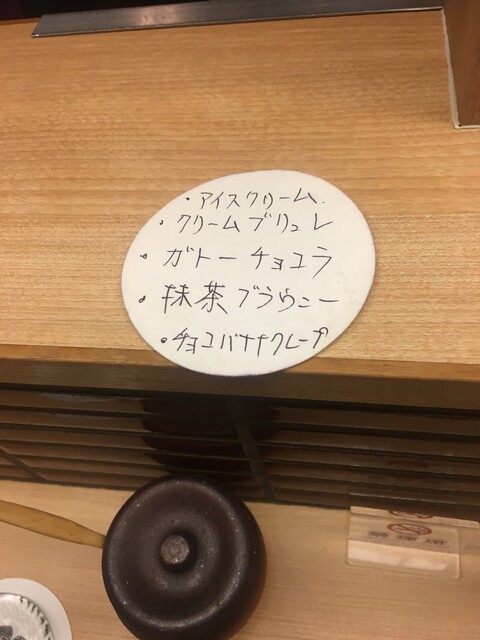 ・アイスクリーム
・クリームブリュレ
・ガトーチョコラ
・抹茶ブラウニー
・チョコバナナクレープ